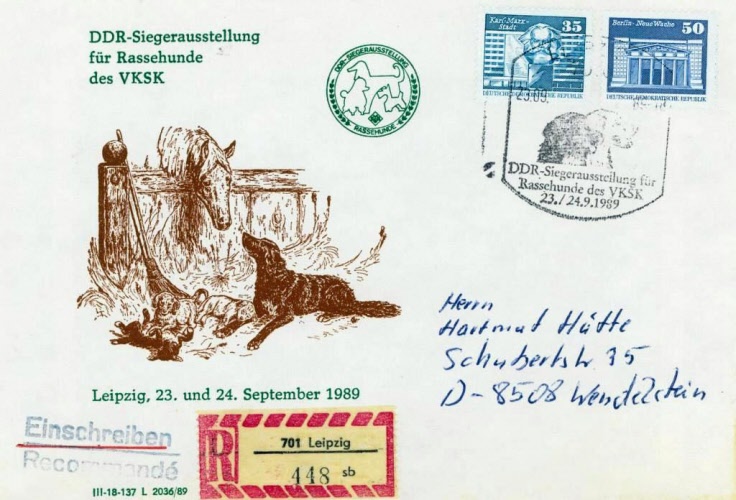 DDR-Siegerausstellung
für Rassehunde
des VKSK
DDR-SIEGERAUSSTELLUNG
RASSEHUNDE
Karl-Marx-
Stadt
35
DEUTSCHE DEMOKRATISCHE REPUBLIK
Berlin-Neue Wache
50
DEUTSCHE DEMOKRATISCHE REPUBLIK
23.09.
DDR-Siegerausstellung für
Rassehunde des VKSK
23./24.9.1989
Herrn
Hartmut Hütte
Schubertstr 35
D-8508 Wendelstein
Leipzig, 23. und 24. September 1989
Einschreiben
Recommandé
R
701 Leipzig
448 sb
III-18-137 L 2036/89